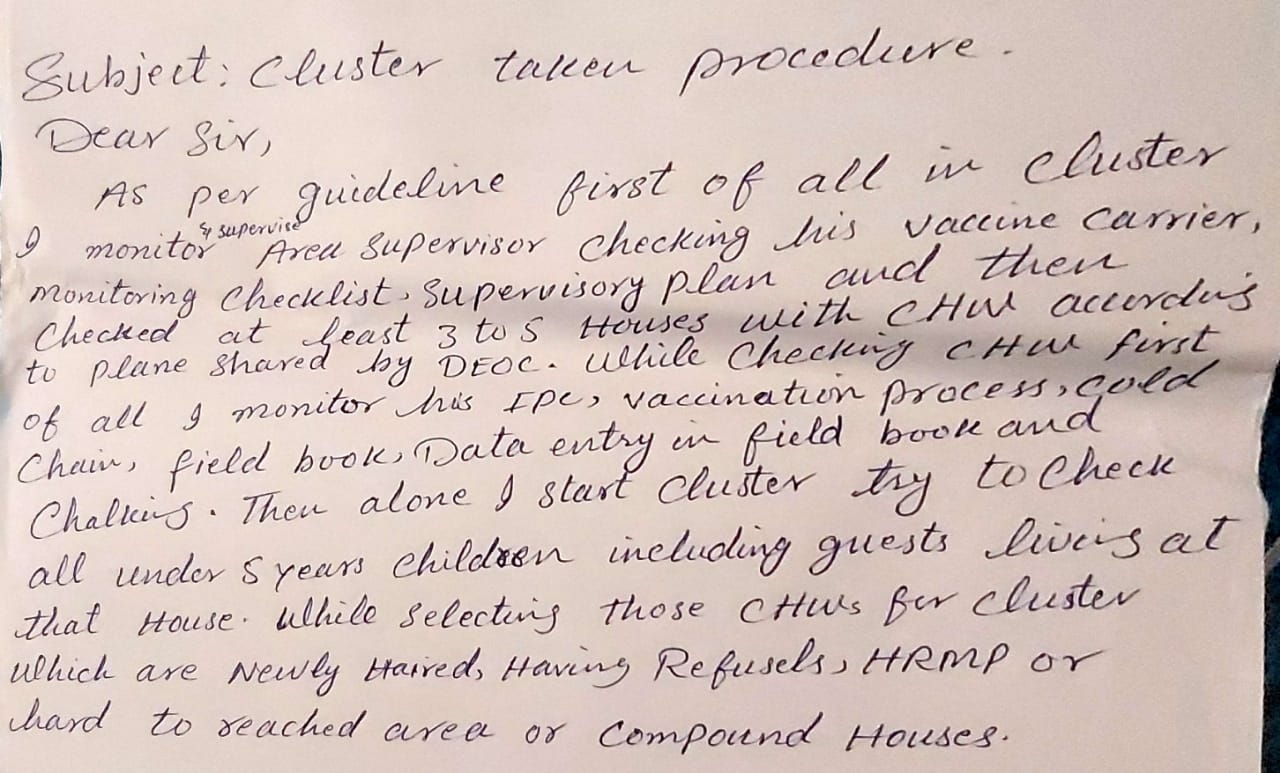 Subject: Cluster taken procedure.
Dear Sir,
As per guideline first of all in cluster
I monitor & supervise Area Supervisor checking his vaccine carrier,
monitoring checklist, Supervisory plan and then
Checked at least 3 to 5 Houses with CHW according
to plane shared by DEOC. While checking CHW first
of all I monitor his IPC, vaccination process, cold
Chain, field book, Data entry in field book and
Chalking. Then alone I start cluster try to check
all under 5 years children including guests living at
that House. While selecting those CHWs for cluster
which are Newly Haired, Having Refusels, HRMP or
hard to reached area or Compound Houses.